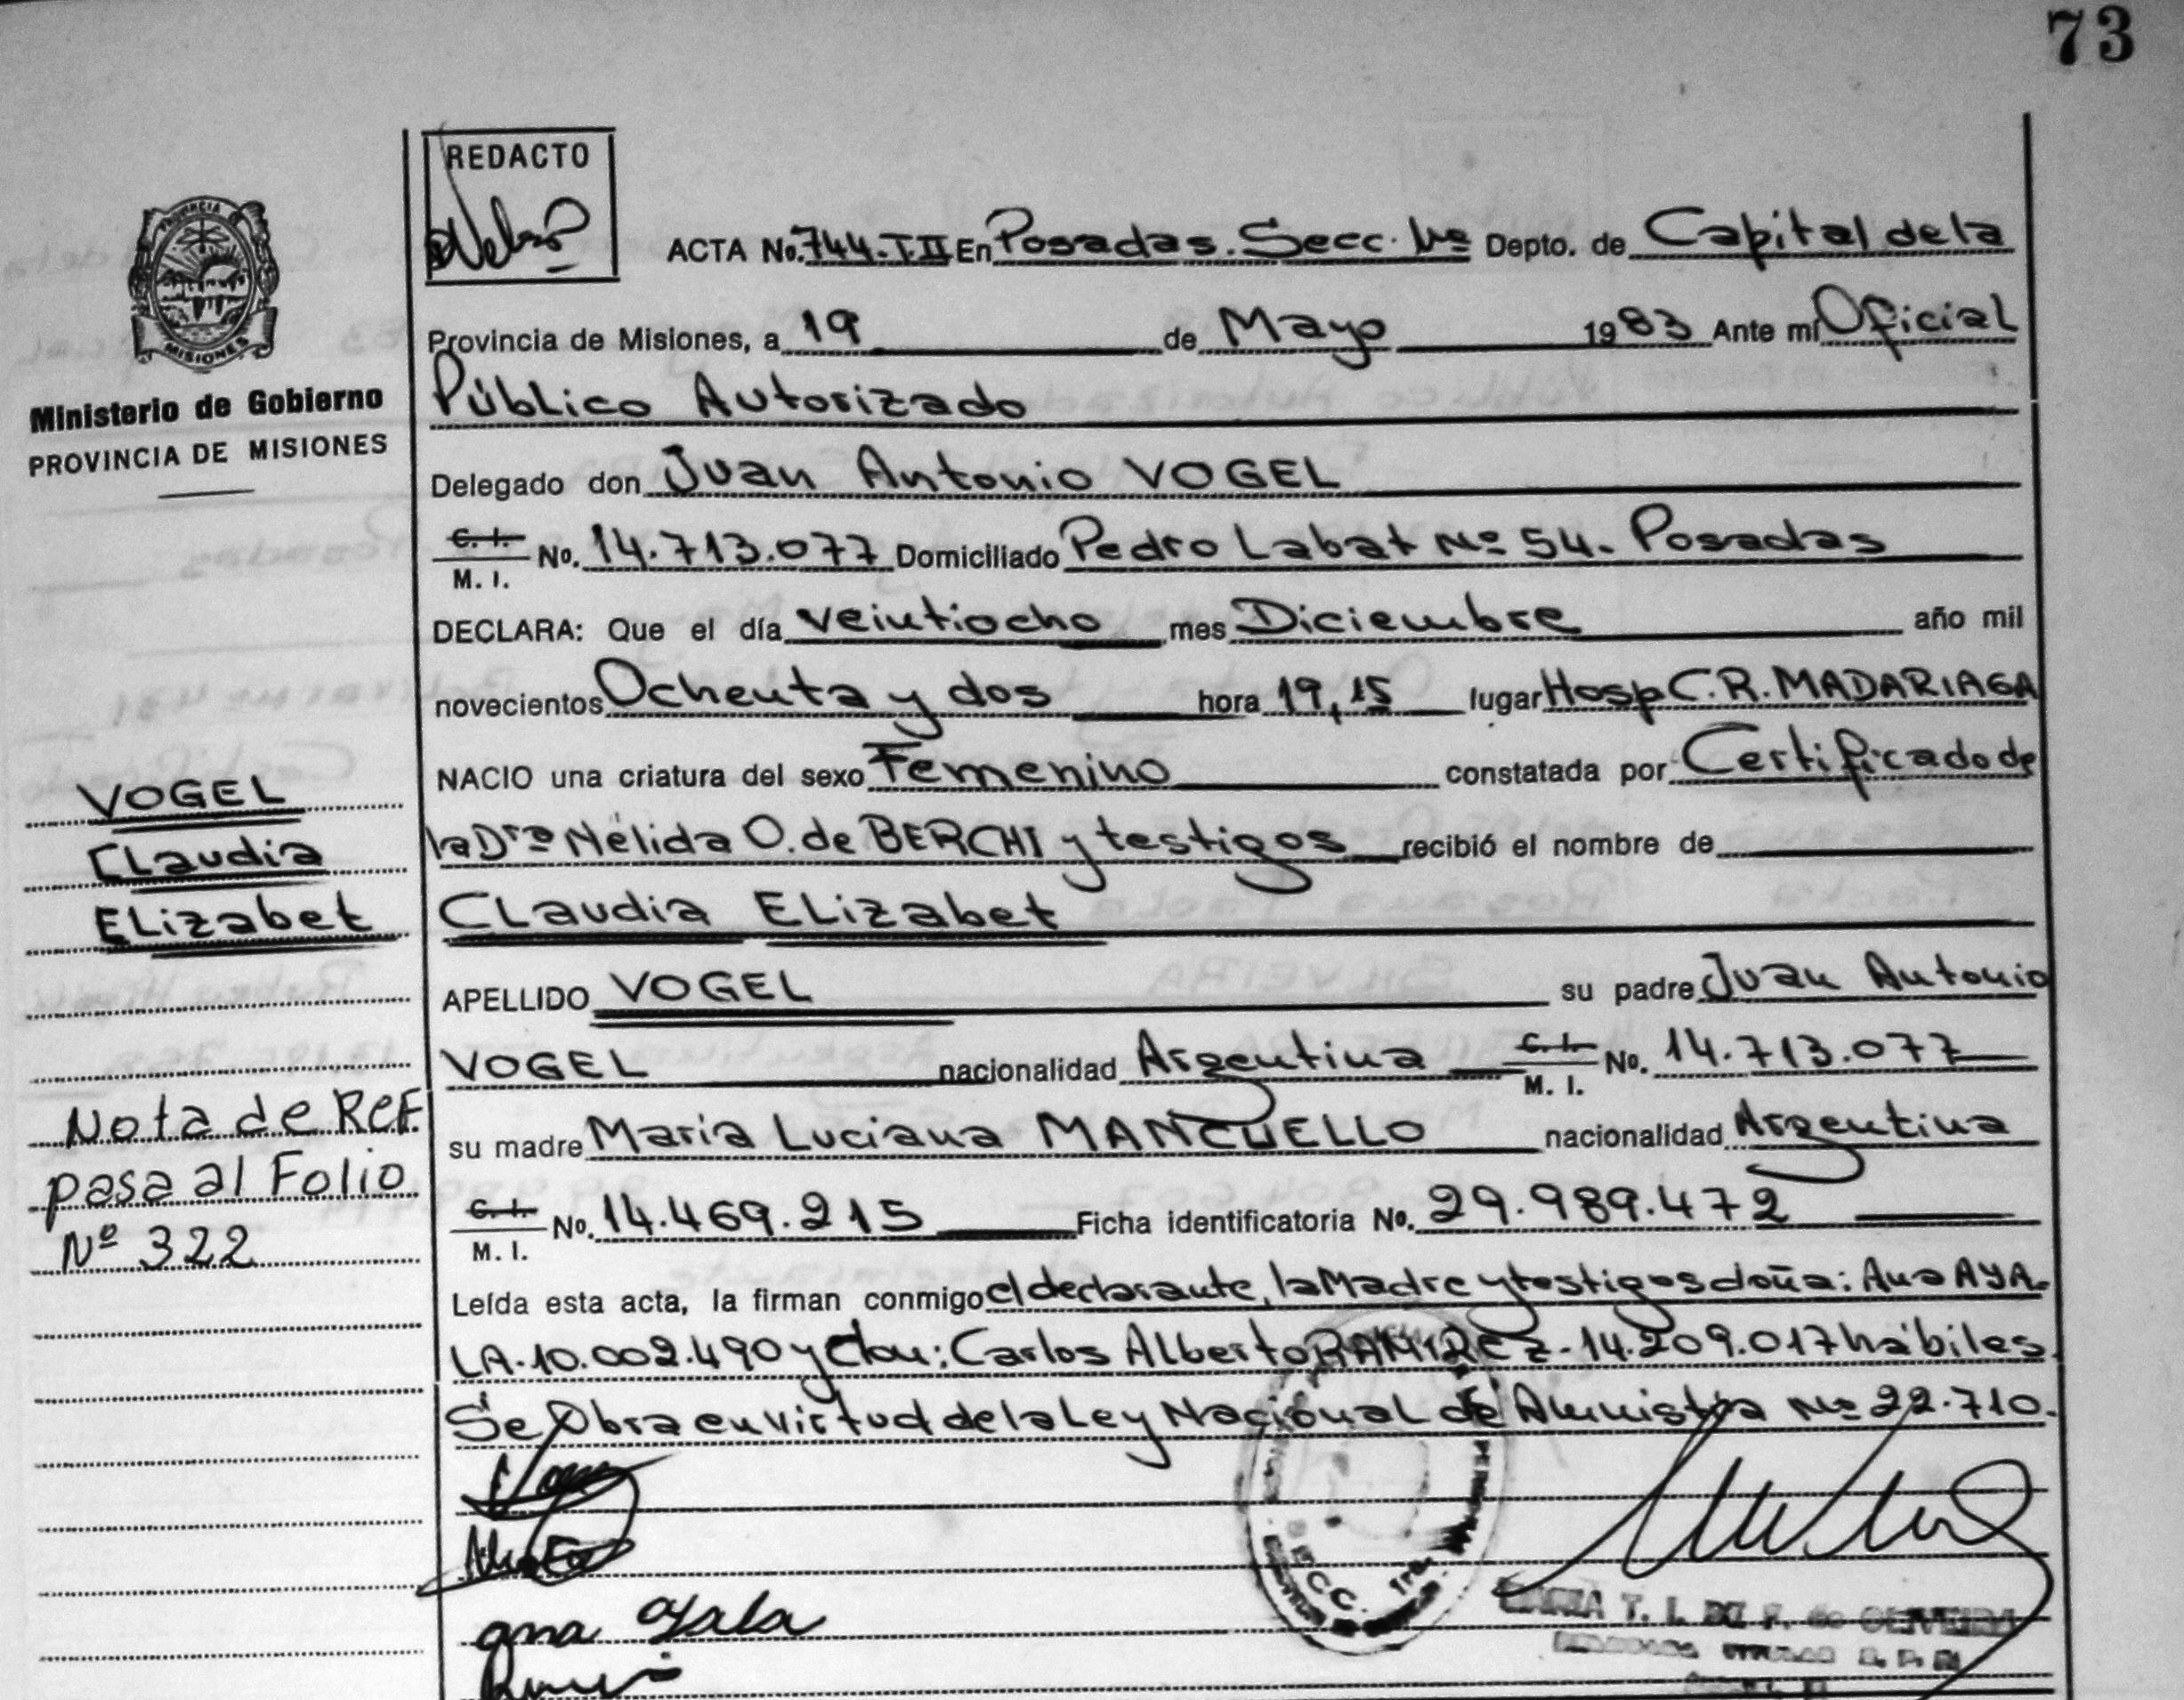 73
REDACTO
PROVINCIA
MISIONES
Ministerio de Gobierno
PROVINCIA DE MISIONES
ACTA No. 744.T.II En Posadas. Secc. 1ª Depto. de Capital de la
Provincia de Misiones, a 19 de Mayo 1983 Ante mí Oficial
Público Autorizado
Delegado don Juan Antonio VOGEL
C. I. M. I. No. 14.713.077 Domiciliado Pedro Labat Nº 54. Posadas
DECLARA: Que el día veintiocho mes Diciembre año mil
novecientos Ochenta y dos hora 19,15 lugar Hosp C.R. MADARIAGA
NACIO una criatura del sexo Femenino constatada por Certificado de
la Drª Nélida O. de BERCHI y testigos recibió el nombre de
CLaudia ELizabet
APELLIDO VOGEL su padre Juan Antonio
VOGEL nacionalidad Argentina C. I. M. I. No. 14.713.077
su madre Maria Luciana MANCUELLO nacionalidad Argentina
C. I. M. I. No. 14.469.215 Ficha identificatoria No. 29.989.472
Leída esta acta, la firman conmigo el declarante, la Madre y testigos doña: Ana AYA-
LA-10.002.490 y don: Carlos Alberto RAMIREZ-14.209.017 hábiles.
Se Obra en virtud de la Ley Nacional de Amnistía Nº 22.710.
VOGEL
CLaudia
ELizabet
Nota de Ref.
pasa al Folio
Nº 322
ana ayala
SECC. 1ra.
T. I. DE F. de OLIVEIRA